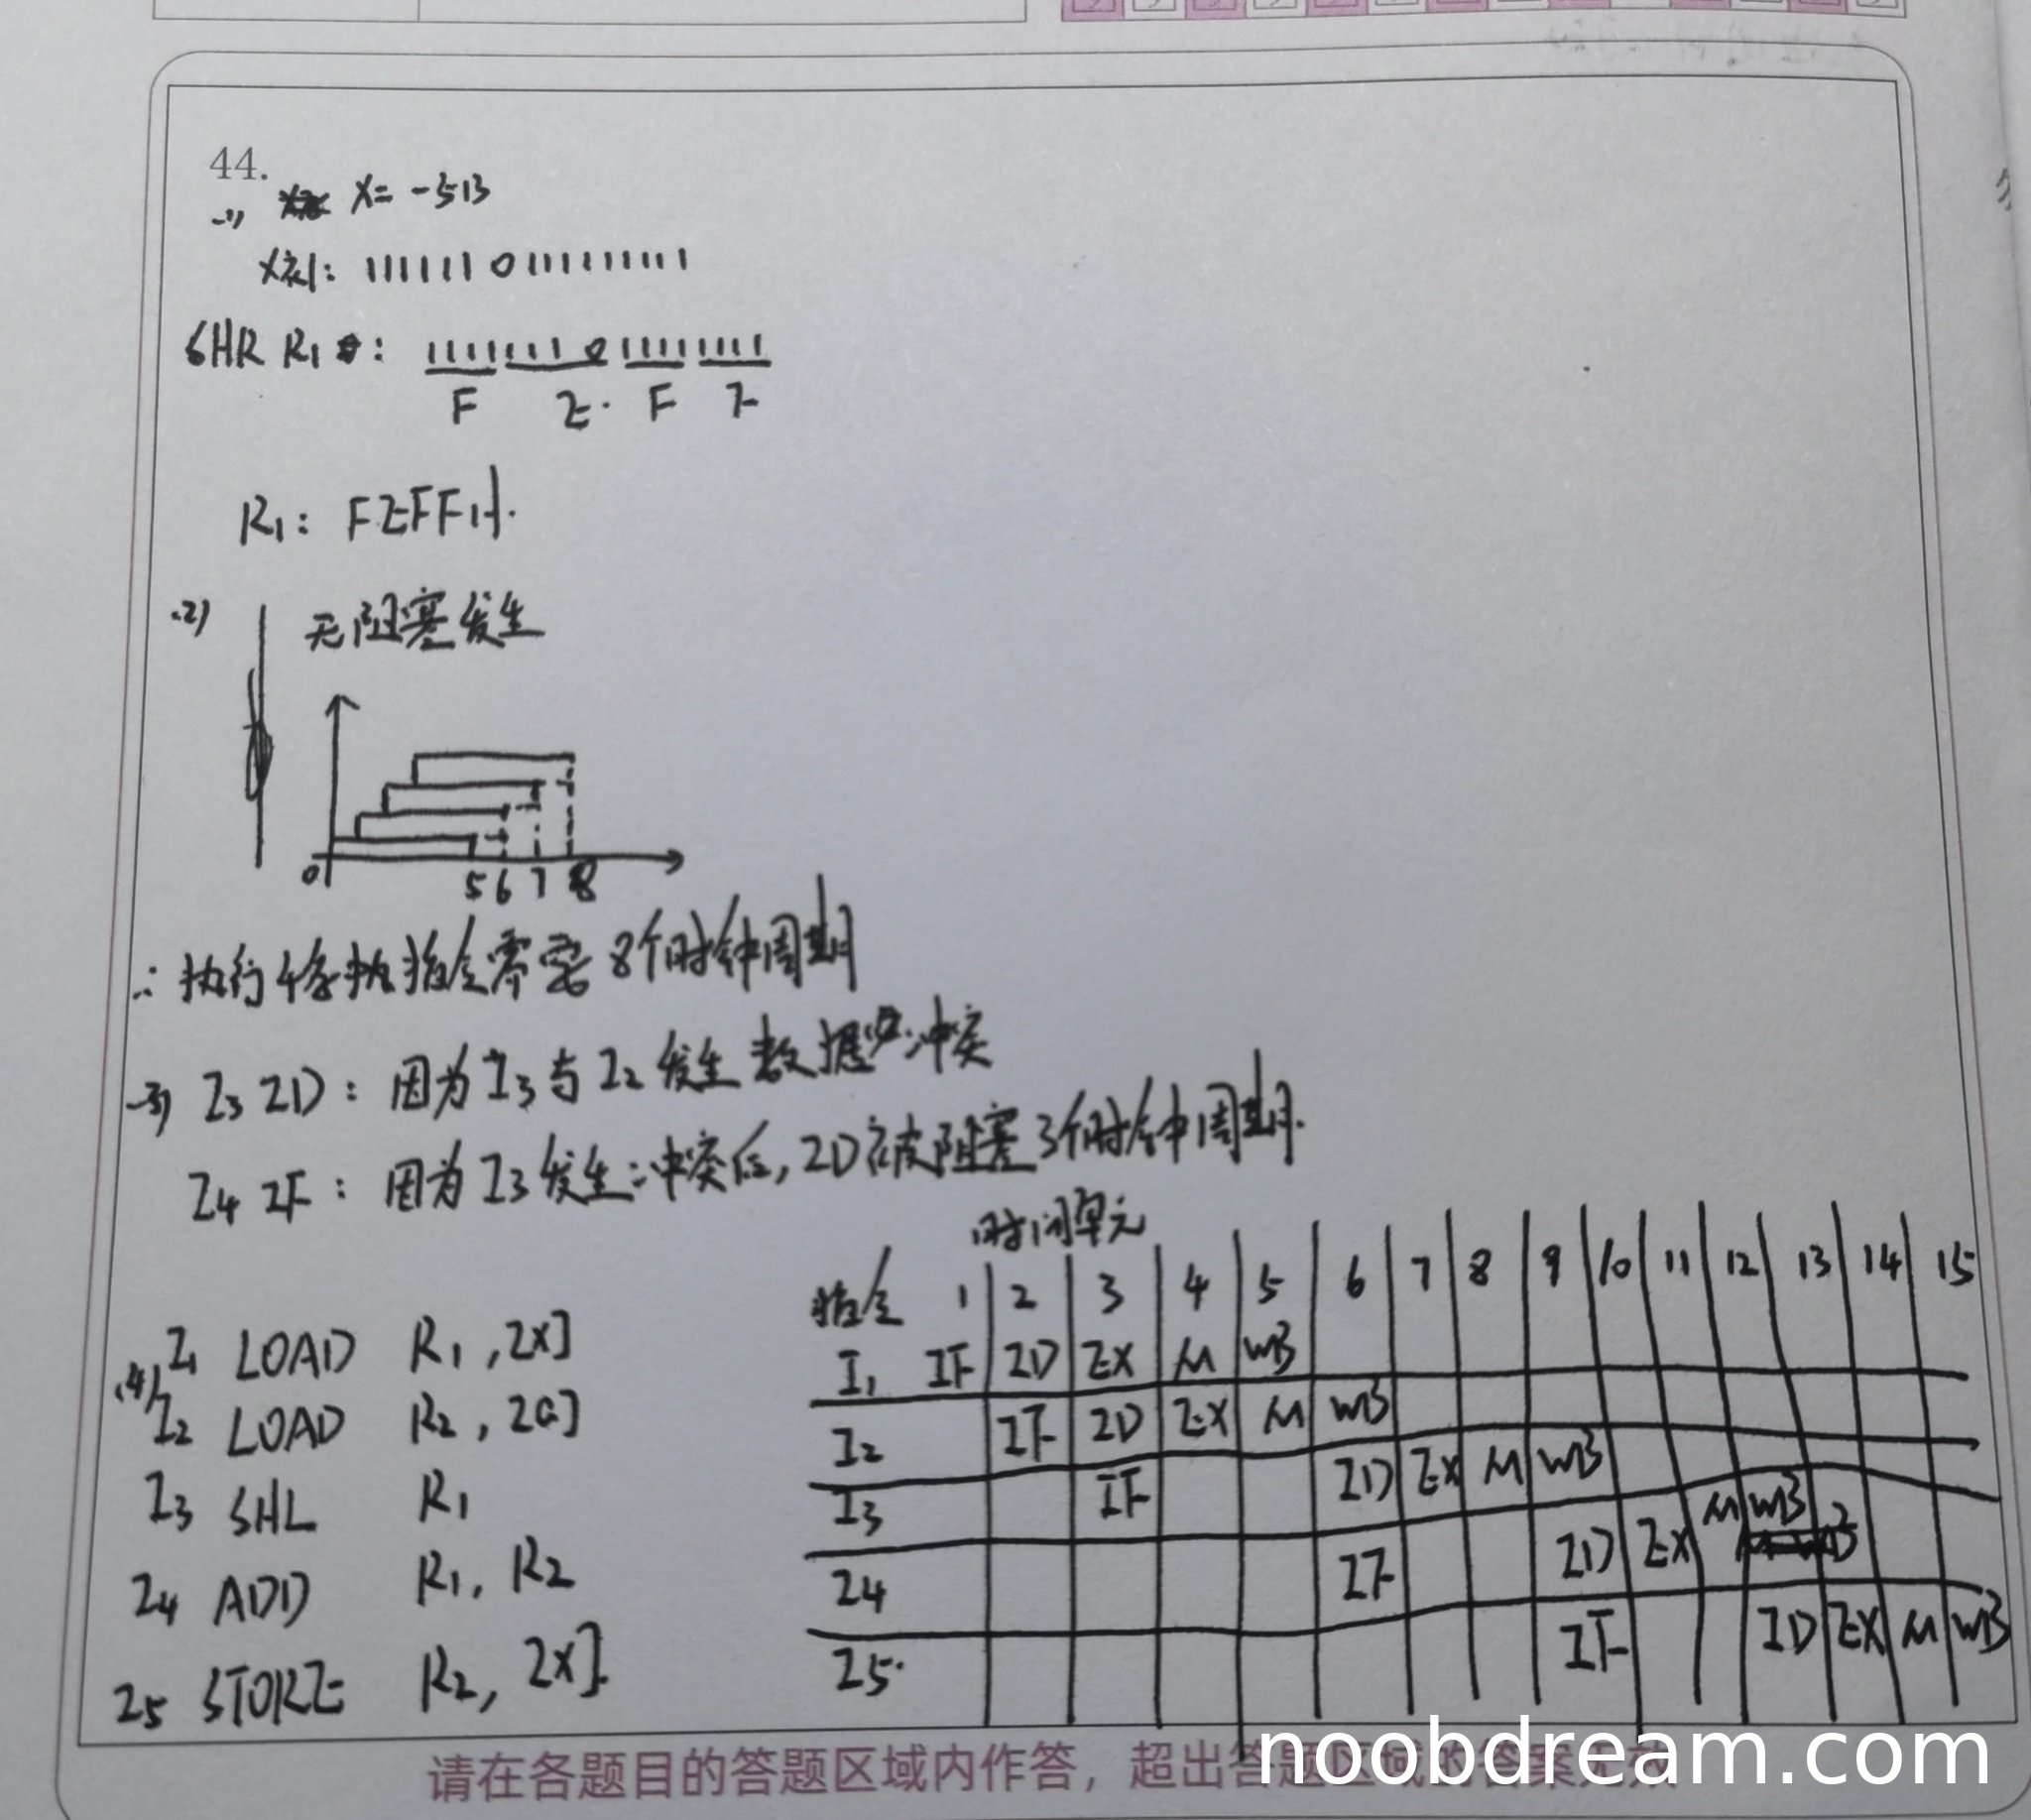 44.
(1) X = -513
X补: 1111110111111111
SHR R1: 1111 1110 1111 1111
F E F F
R1: FEFFH.
(2) 无阻塞发生
0 5 6 7 8
∴ 执行4条指令需要 8个时钟周期
(3) I3 ID: 因为I3与I2发生数据冲突
I4 IF: 因为I3发生冲突后, ID被阻塞3个时钟周期.
时间单元
指令 1 2 3 4 5 6 7 8 9 10 11 12 13 14 15
(4) I1 LOAD R1, [X]
I2 LOAD R2, [a]
I3 SHL R1
I4 ADD R1, R2
I5 STORE R2, [X].
I1 IF ID EX M WB
I2 IF ID EX M WB
I3 IF ID EX M WB
I4 IF ID EX M WB
I5. IF ID EX M WB
请在各题目的答题区域内作答，超出答题区域的答案无效
noobdream.com